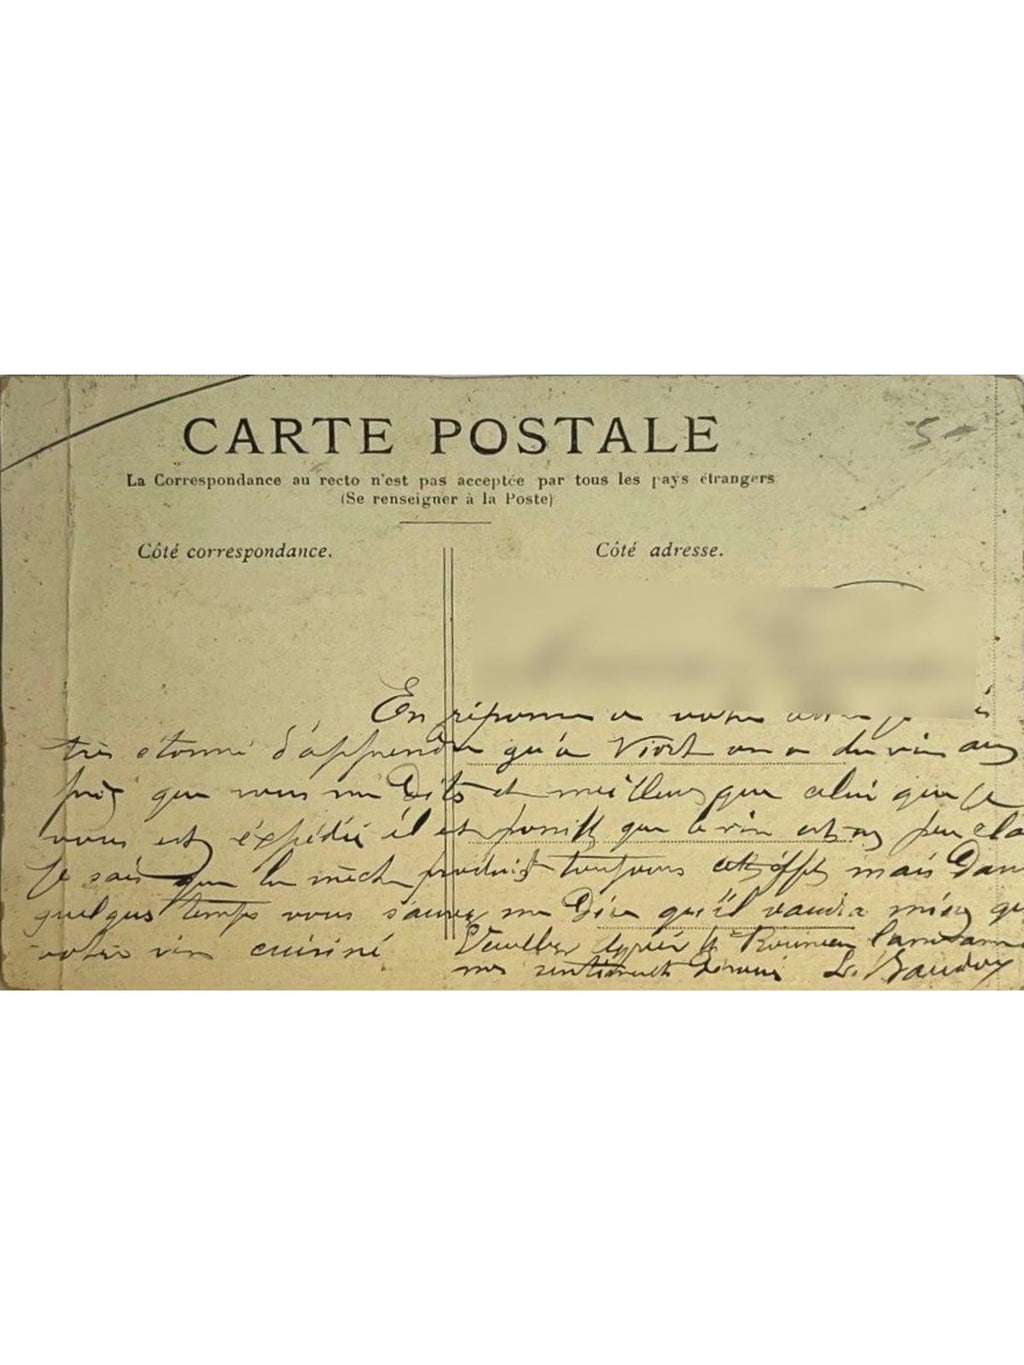 5-
CARTE POSTALE
La Correspondance au recto n'est pas acceptée par tous les pays étrangers
(Se renseigner à la Poste)
Côté correspondance.
Côté adresse.
En réponse a votre
très étonné d'apprendre qu'a on a du vin aux
prix que vous me Dits et meilleur que celui que je
vous est éxpédié il est possible que le vin est un peu
Je sais que la mèche produit toujours cett éffet mais Dans
quelques temps vous saurez me Dire qu'il vaudra mieux que
votre vin cuisiné Veuillez
mes sentiments L. Baudoy